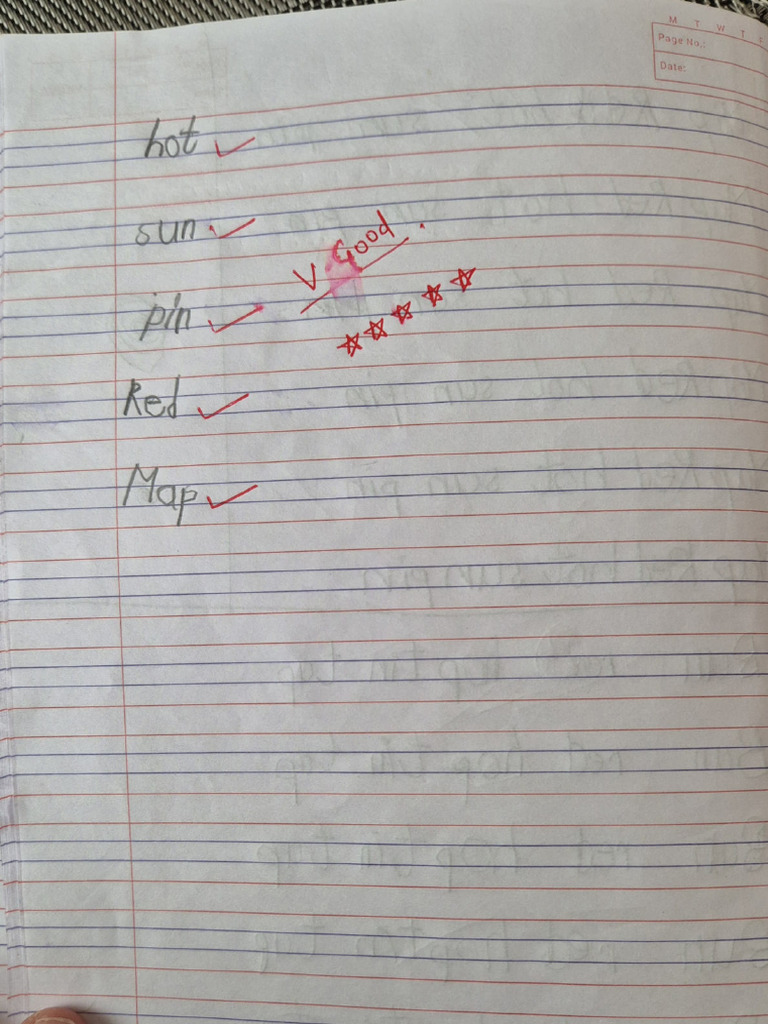 M T W T F
Page No.:
Date:
hot
sun
V Good.
pin
Red
Map